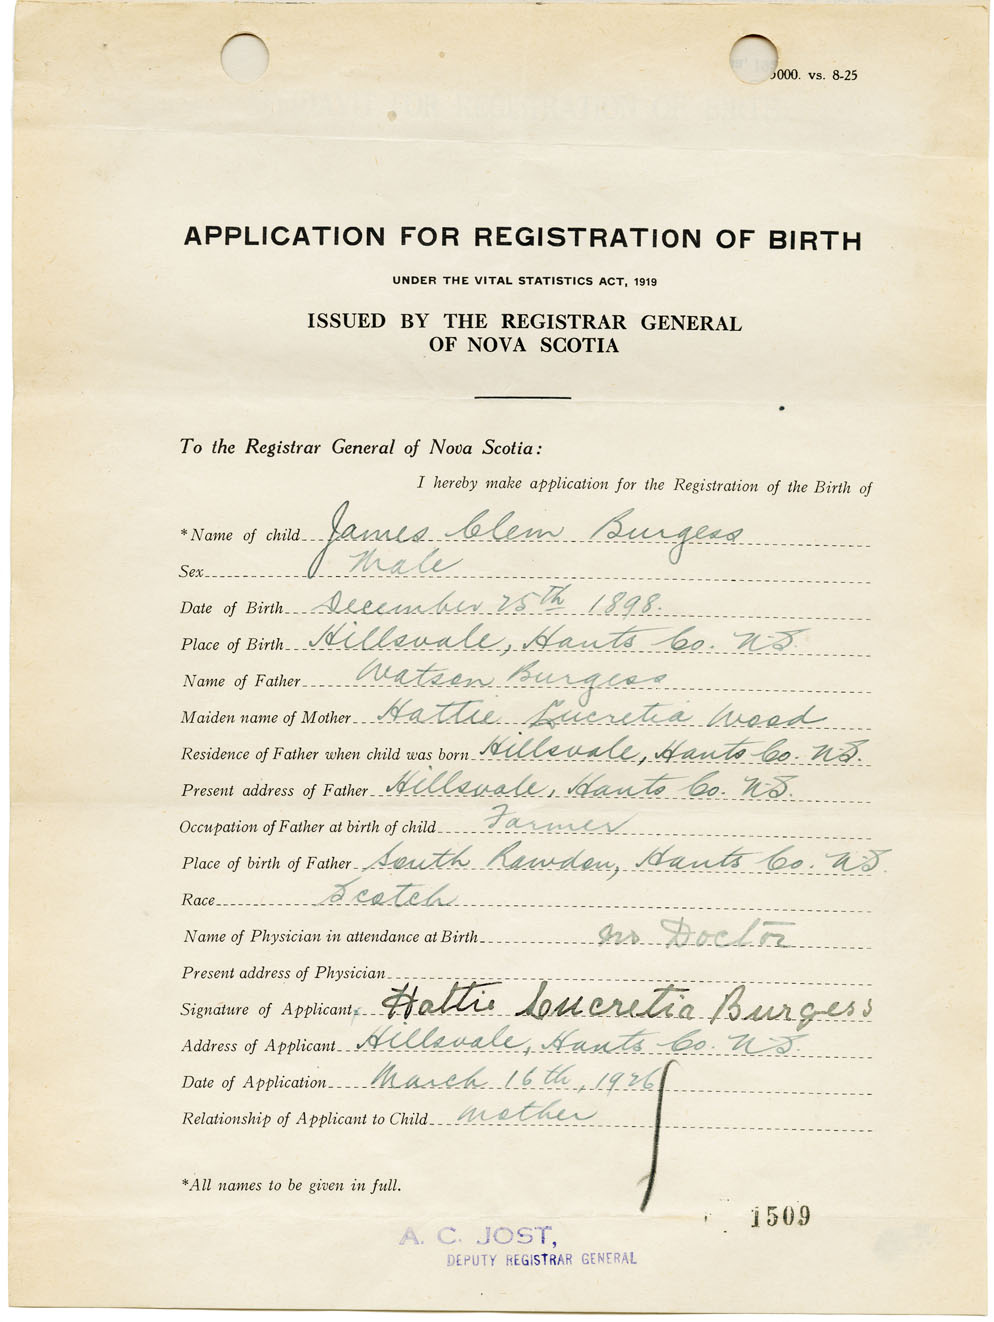 000. vs. 8-25
APPLICATION FOR REGISTRATION OF BIRTH
UNDER THE VITAL STATISTICS ACT, 1919
ISSUED BY THE REGISTRAR GENERAL
OF NOVA SCOTIA
To the Registrar General of Nova Scotia:
I hereby make application for the Registration of the Birth of
*Name of child James Clem Burgess
Sex Male
Date of Birth December 25th 1898.
Place of Birth Hillsvale, Hants Co. N.S.
Name of Father Watson Burgess
Maiden name of Mother Hattie Lucretia Wood
Residence of Father when child was born Hillsvale, Hants Co. N.S.
Present address of Father Hillsvale, Hants Co. N.S.
Occupation of Father at birth of child Farmer
Place of birth of Father South Rawdon, Hants Co. N.S.
Race Scotch
Name of Physician in attendance at Birth no Doctor
Present address of Physician
Signature of Applicant Hattie Lucretia Burgess
Address of Applicant Hillsvale, Hants Co. N.S.
Date of Application March 16th, 1926
Relationship of Applicant to Child mother
*All names to be given in full.
1509
A. C. JOST,
DEPUTY REGISTRAR GENERAL